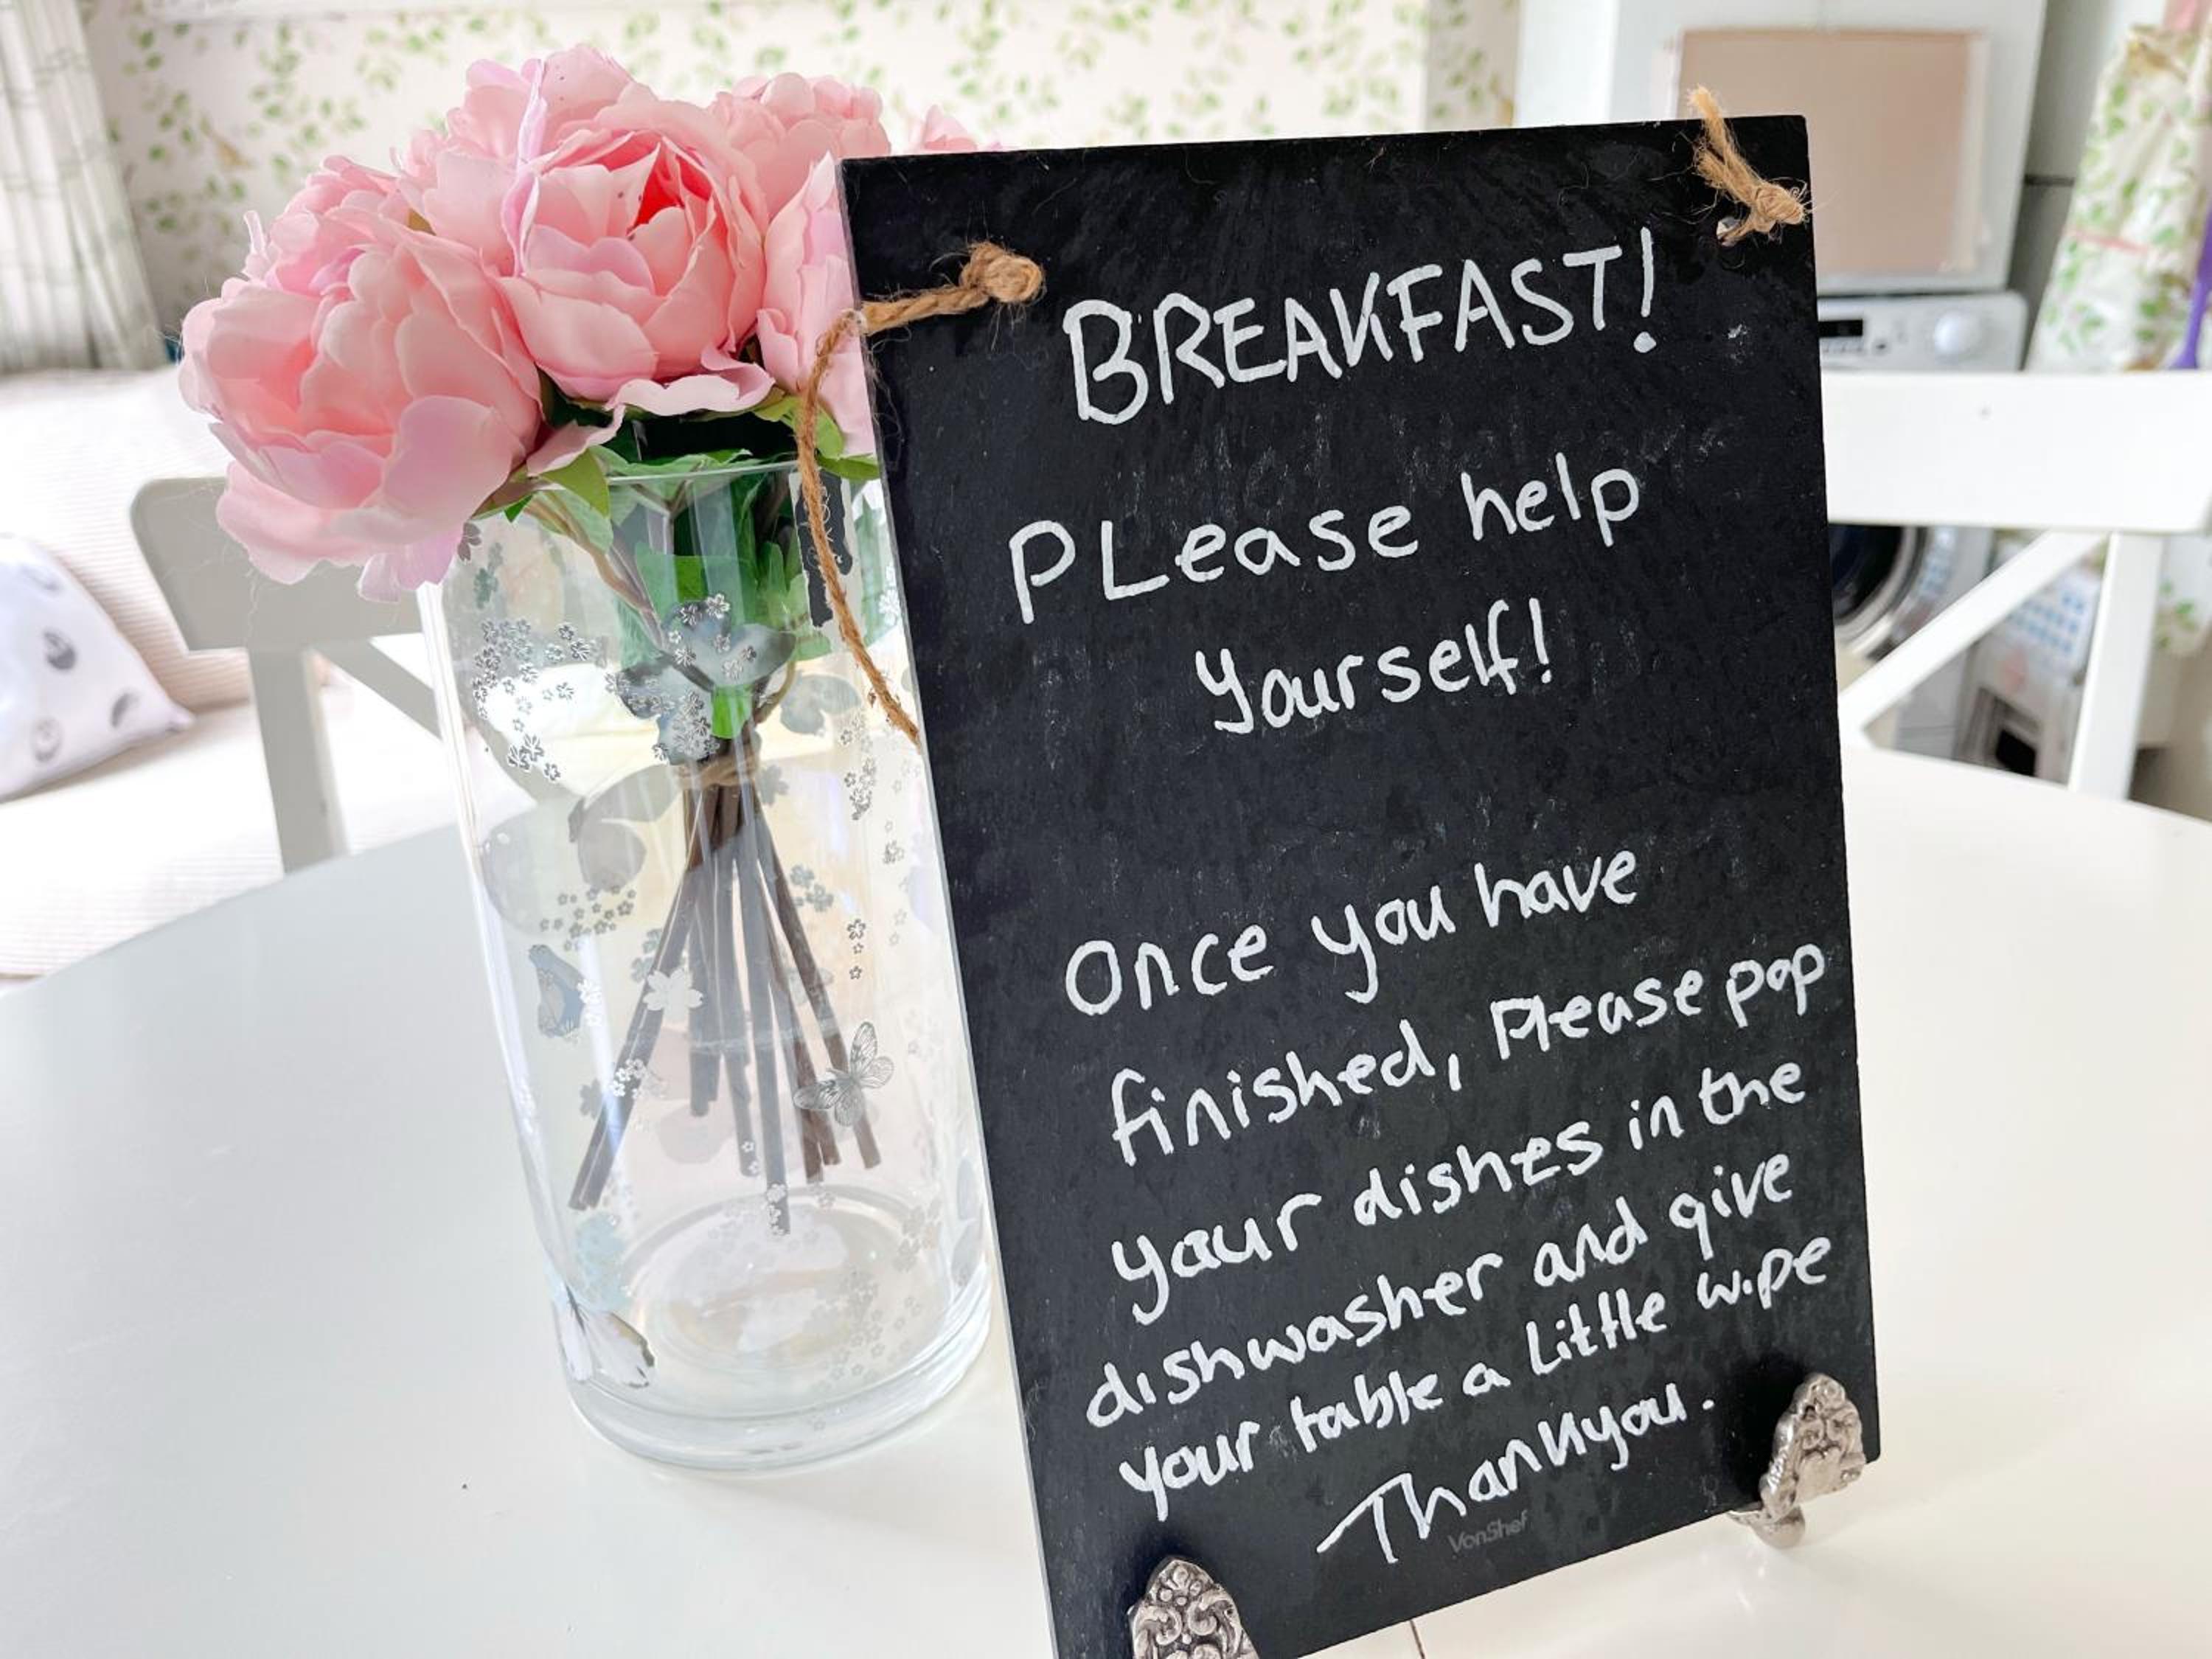 BREAKFAST!
PLease help
yourself!
Once you have
finished, Please pop
your dishes in the
dishwasher and give
your table a little wipe
Thankyou.
VonShef